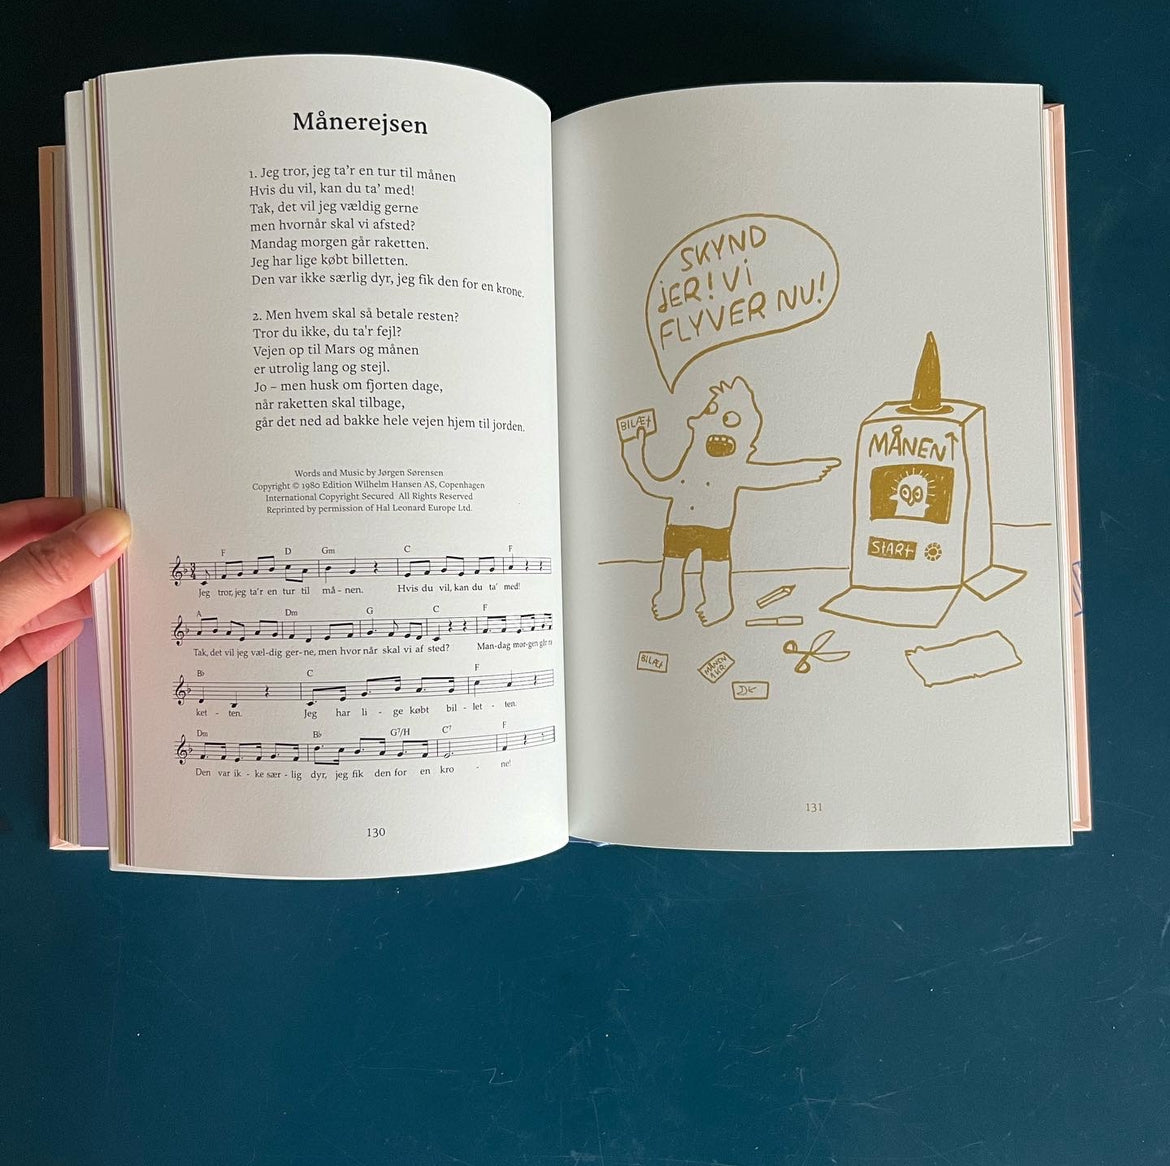 Månerejsen
1. Jeg tror, jeg ta'r en tur til månen
Hvis du vil, kan du ta' med!
Tak, det vil jeg vældig gerne
men hvornår skal vi afsted?
Mandag morgen går raketten.
Jeg har lige købt billetten.
Den var ikke særlig dyr, jeg fik den for en krone.
2. Men hvem skal så betale resten?
Tror du ikke, du ta'r fejl?
Vejen op til Mars og månen
er utrolig lang og stejl.
Jo – men husk om fjorten dage,
når raketten skal tilbage,
går det ned ad bakke hele vejen hjem til jorden.
Words and Music by Jørgen Sørensen
Copyright © 1980 Edition Wilhelm Hansen AS, Copenhagen
International Copyright Secured All Rights Reserved
Reprinted by permission of Hal Leonard Europe Ltd.
F D Gm C F
Jeg tror, jeg ta'r en tur til må - nen. Hvis du vil, kan du ta' med!
A Dm G C F
Tak, det vil jeg væl-dig ger-ne, men hvor når skal vi af sted? Man-dag mor-gen går
B♭ C F
ket - ten. Jeg har li - ge købt bil - let - ten.
Dm B♭ G7/H C7 F
Den var ik - ke sær - lig dyr, jeg fik den for en kro - ne!
130
SKYND
JER! VI
FLYVER NU!
BILÆT
MÅNEN↑
START
BILÆT
MÅNEN
1 KR.
DK
131